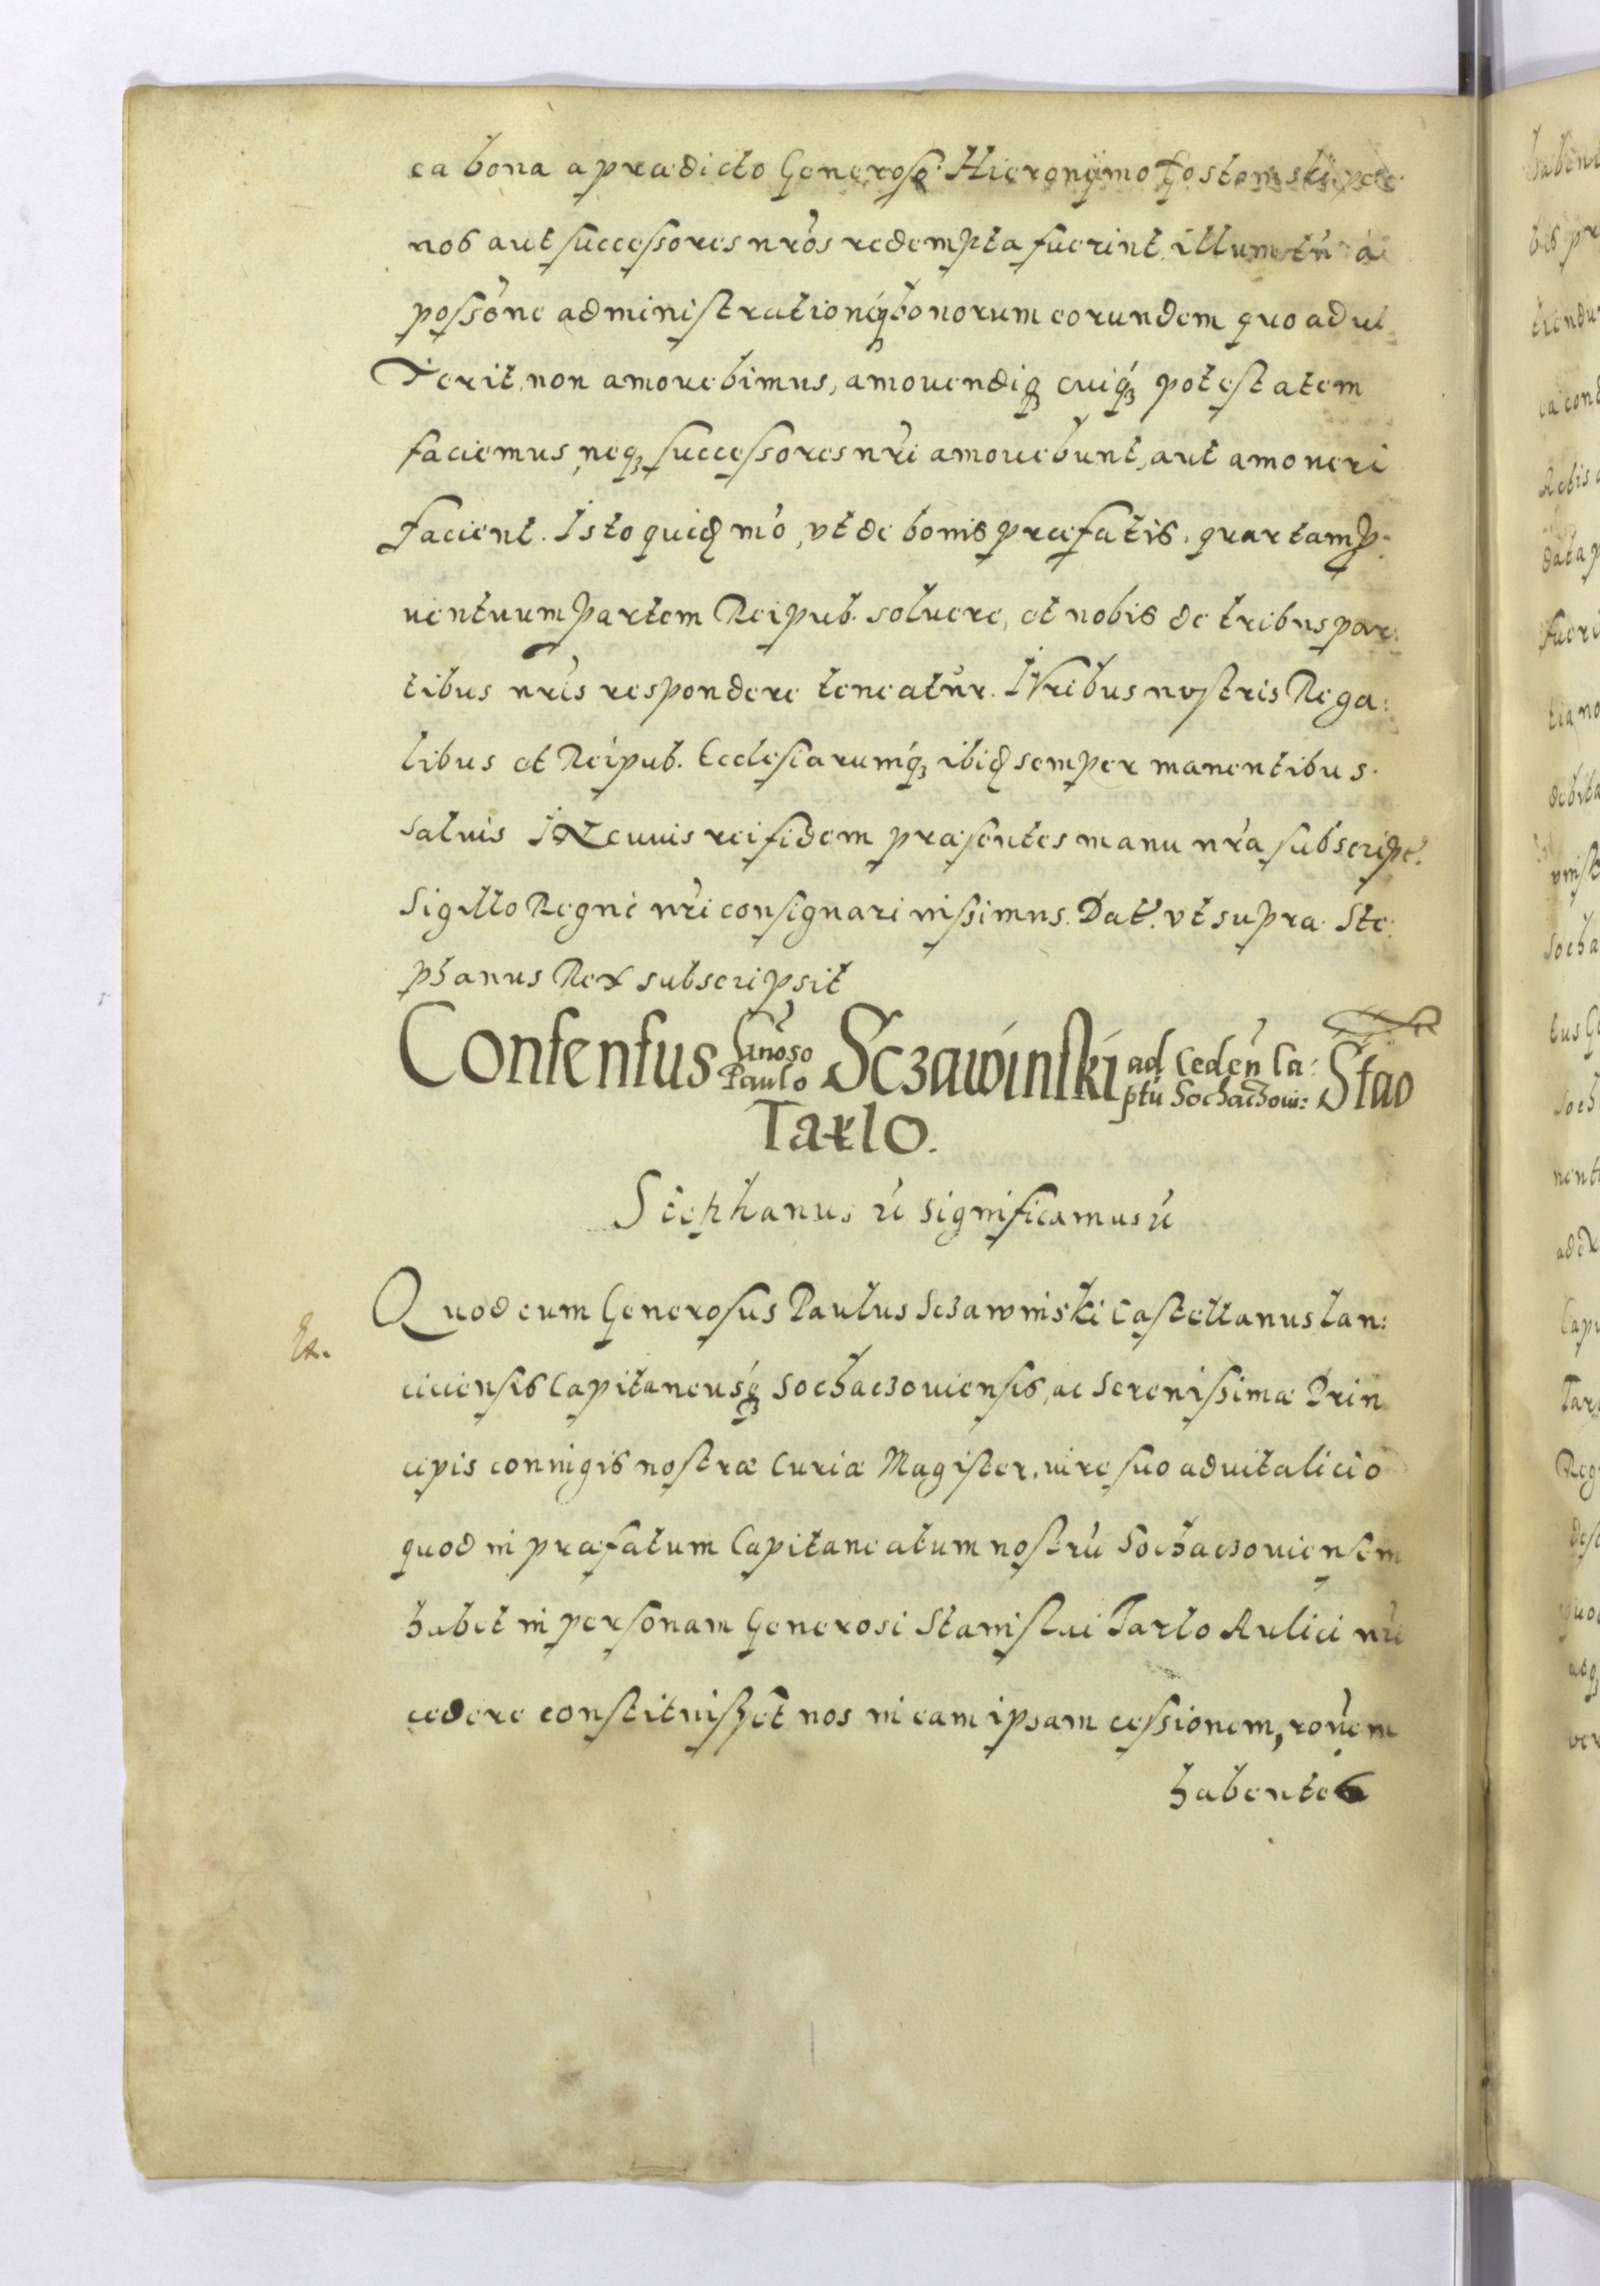 ea bona a prædicto Generoso Hieronÿmo Gostomski per
nos aut successores nr̃os redempta fuerint, illum tñ a
possõne administrationéq̃ bonorum eorundem quo ad ui-
xerit, non amouebimus, amouendiq̃ cuiq̃ potestatem
faciemus, neq̃ successores nr̃i amouebunt, aut amoueri
facient. Isto quid̃ mõ, vt de bonis præfatis, quartam p̃-
uentuum partem Reipub. soluere, et nobis de tribus par:
tibus nr̃is respondere teneatur. IVribus nostris Rega:
libus et Reipub. Ecclesiarumq̃ ibid̃ semper manentibus
saluis IN cuius rei fidem præsentes manu nr̃a subscript.
Sigillo Regni nr̃i consignari iussimus. Dat. vt supra. Ste:
phanus Rex subscripsit
Consensus Gñoso Paulo Sczawinski ad Ceden̄ Ca: ptũ Sochaczow: Stao
Tarlo.
Stephanus ñ significamus ñ
Quod cum Generosus Paulus Sczawinski Castellanus Lan:
ciciensis Capitaneusq̃ Sochaczouiensis, ac Serenissimæ Prin
cipis coniugis nostræ Curiæ Magister, iure suo aduitalicio
quod in præfatum Capitaneatum nostrũ Sochaczouiensem
habet in personam Generosi Stanislai Tarlo Aulici nr̃i
cedere constituisset nos in eam ipsam cessionem, rõnem
habentes